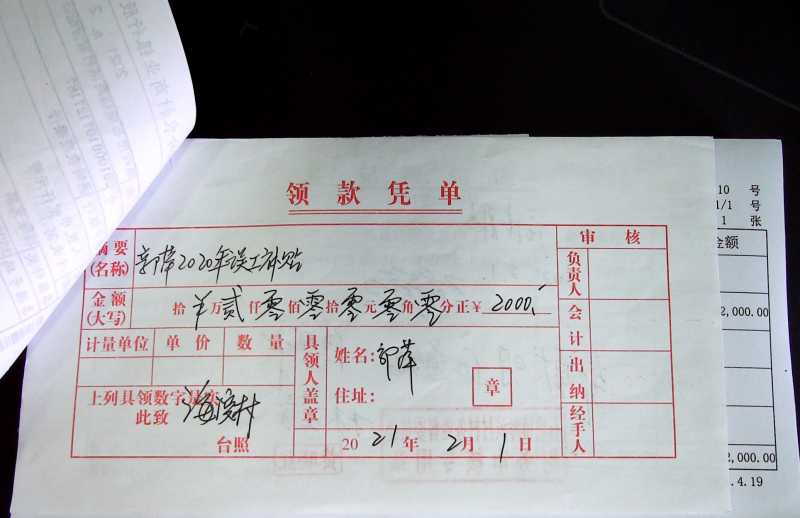 领款凭单
摘要
(名称)
郭萍2020年误工补贴
审核
金额
(大写)
拾 万贰仟零佰零拾零元零角零分正¥ 2000.
负责人
会计
出纳
经手人
计量单位 单价 数量
具领人盖章
姓名:郭萍
住址:
章
上列具领数字是实
此致
海滨村
台照
2021年2月1日
10 号
1/1 号
1 张
金额
2,000.00
2,000.00
.4.19